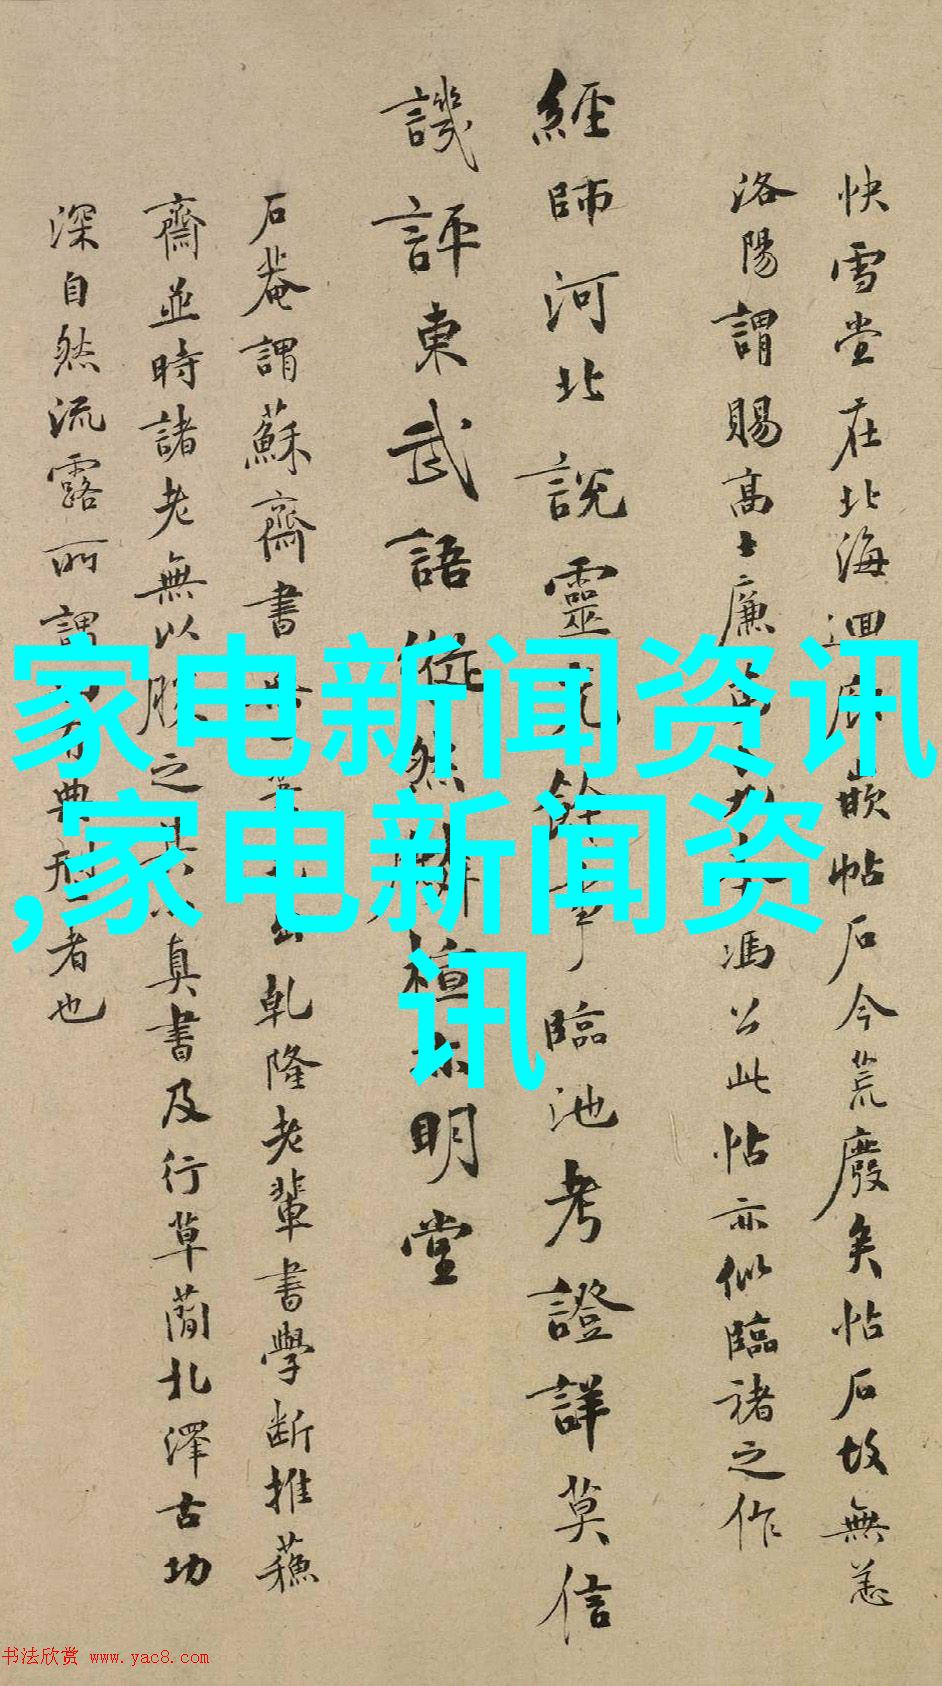 快雪堂在北海迴廊嵌帖石今荒廢矣帖石故無恙
洛陽謂賜高士廉馮公此帖亦似臨褚之作
經師河北說靈 餘事臨池考證詳莫信
譏評東武語縱然 楦亦明堂
石菴謂蘇齋書 乾隆老輩書學斷推蘇
齋並時諸老無以勝之 真書及行草簡札澤古功
深自然流露所謂 有典刑者也
家电新闻资讯
,家电新闻资
讯
书法欣赏 www.yac8.com